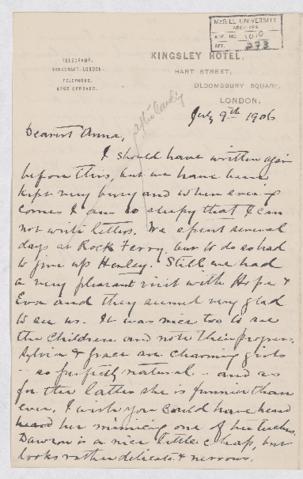 McGILL UNIVERSITY
ARCHIVES
ACC. NO. 1010
REF. 293
TELEGRAMS,
TELEPHONE,
KINGSLEY HOTEL,
HART STREET,
BLOOMSBURY SQUARE,
LONDON.
July 9th 1906
Dearest Anna,
I should have written again
before this, but we have been
kept very busy and when evening
comes I am so sleepy that I can
not write letters. We spent several
days at Rock Ferry but to do so had
to give up Henley. Still we had
a very pleasant visit with Hope &
Eva and they seemed very glad
to see us. It was nice too to see
the children and note their progress.
Sylvia & Grace are charming girls
– so perfectly natural – and as
for the latter she is funnier than
ever. I wish you could have heard
heard her mimicing one of her teachers.
Dawson is a nice little chap, but
looks rather delicate & nervous.